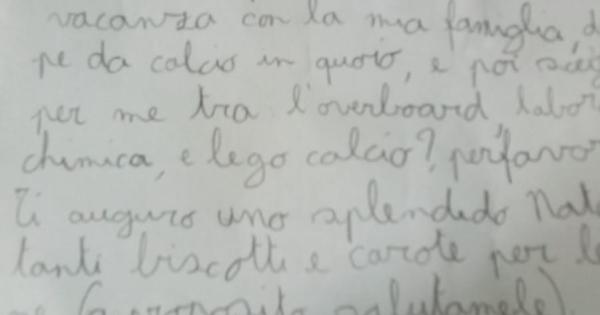 vacanza con la mia famiglia, d
pe da calcio in quoio, e poi sceg
per me tra l'overboard, labor
chimica, e lego calcio? perfavor
Ti auguro uno splendido Nata
tanti biscotti e carote per le
ne (a proposito salutamele)